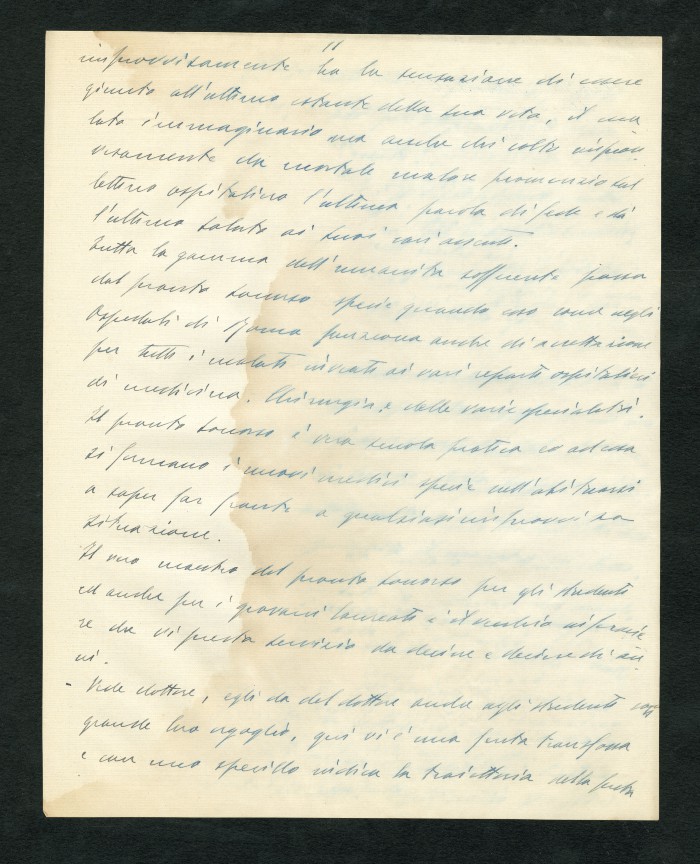 11
improvvisamente ha la sensazione di essere
giunto all'ultimo istante della sua vita, il ma
lato immaginario ma anche chi colto improv
visamente da mortale malore pronunzia sul
lettino ospitalino l'ultima parola di fede e dà
l'ultimo saluto ai suoi cari assenti.
Tutta la gamma dell'umanità sofferente passa
dal pronto soccorso specie quando esso come negli
Ospedali di Roma funziona anche di accettazione
per tutti i malati inviati ai vari reparti ospitalini
di medicina, Chirurgia, e delle varie specialità.
Il pronto soccorso è vera scuola pratica ed ad essa
si formano i nuovi medici specie nell'abituarsi
a saper far fronte a qualsiasi improvvisa
situazione.
Il vero maestro del pronto soccorso per gli studenti
ed anche per i giovani laureati è il vecchio infermie
re da vi presta servizio da decine e decine di an
ni.
- Vede dottore, egli da del dottore anche agli studenti con
grande loro orgoglio, qui vi è una ferita transfossa
e con uno specillo indica la traiettoria della ferita